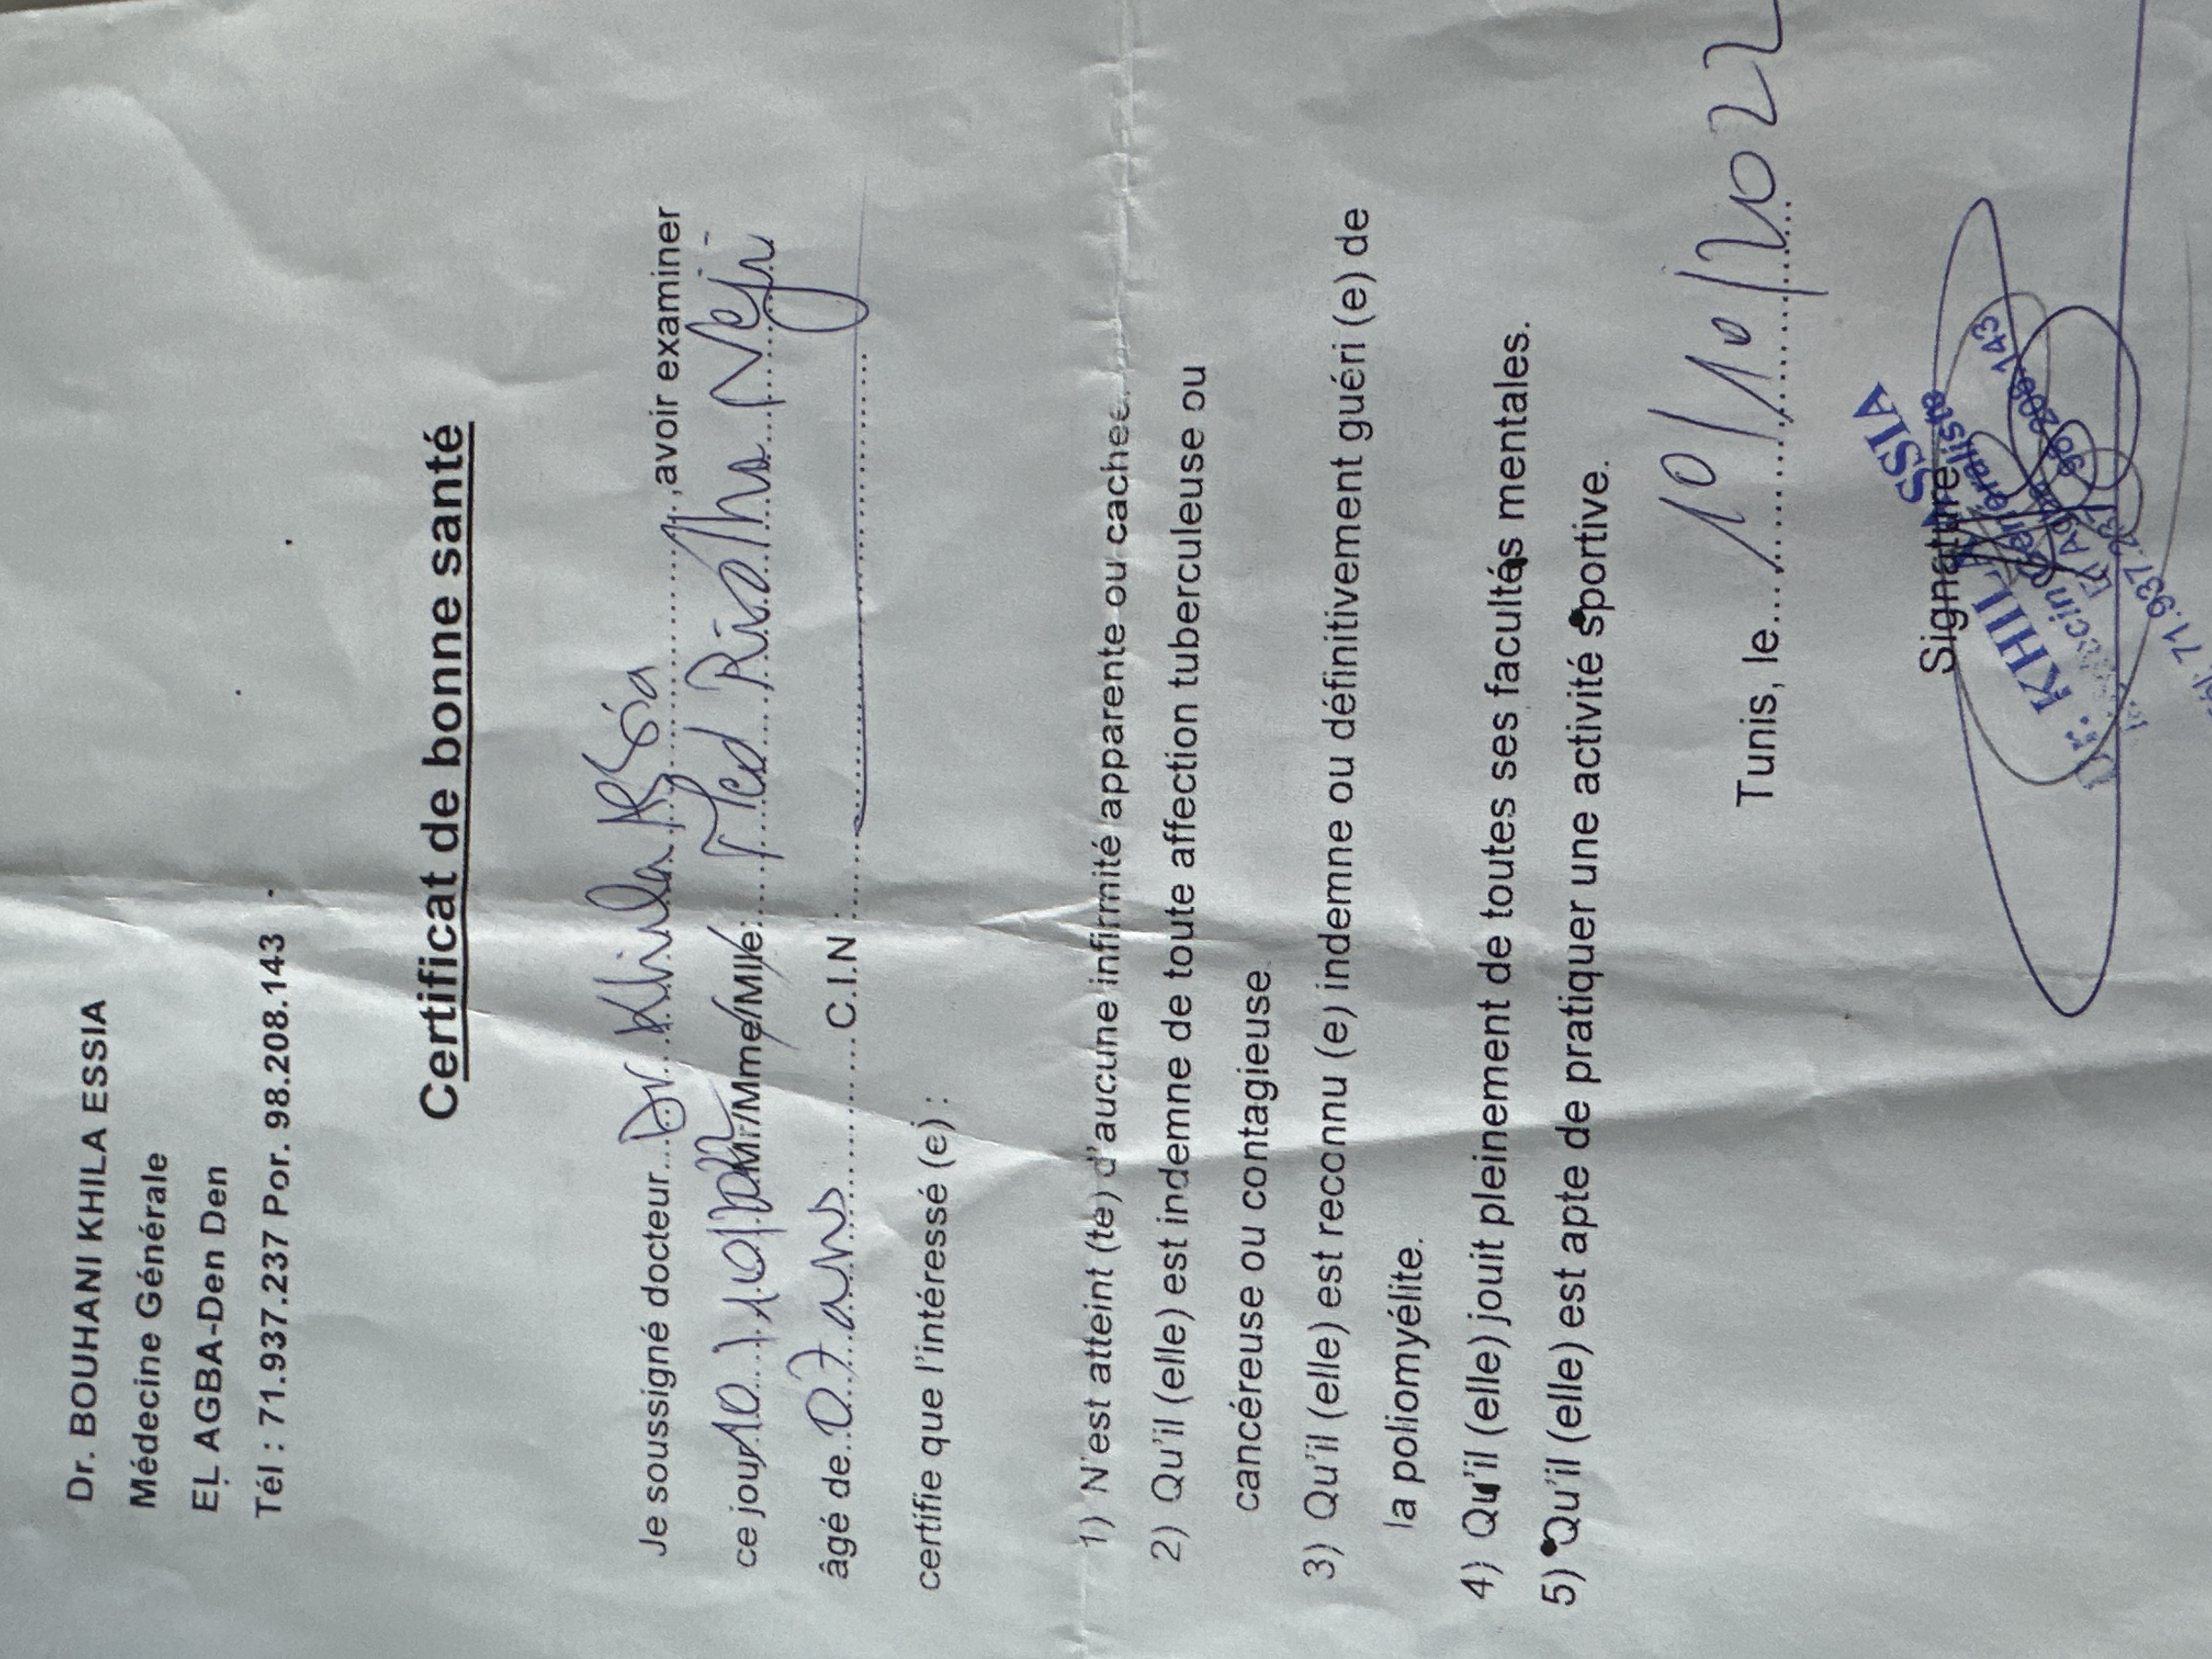 Dr. BOUHANI KHILA ESSIA
Médecine Générale
EL AGBA-Den Den
Tél : 71.937.237 Por. 98.208.143
Certificat de bonne santé
Je soussigné docteur Dr. Khila , avoir examiner
ce jour 10/10/2022 Mr/Mme/Mlle: Med Ridha Neji
âgé de 07 ans C.I.N
certifie que l'intéressé (e) :
1) N'est atteint (te) d'aucune infirmité apparente ou cachee.
2) Qu'il (elle) est indemne de toute affection tuberculeuse ou
cancéreuse ou contagieuse
3) Qu'il (elle) est reconnu (e) indemne ou définitivement guéri (e) de
la poliomyélite.
4) Qu'il (elle) jouit pleinement de toutes ses facultés mentales.
5) Qu'il (elle) est apte de pratiquer une activité sportive.
Tunis, le 10/10/2022
Signature
Dr. KHILA ESSIA
Généraliste
71.937.237 98.208.143